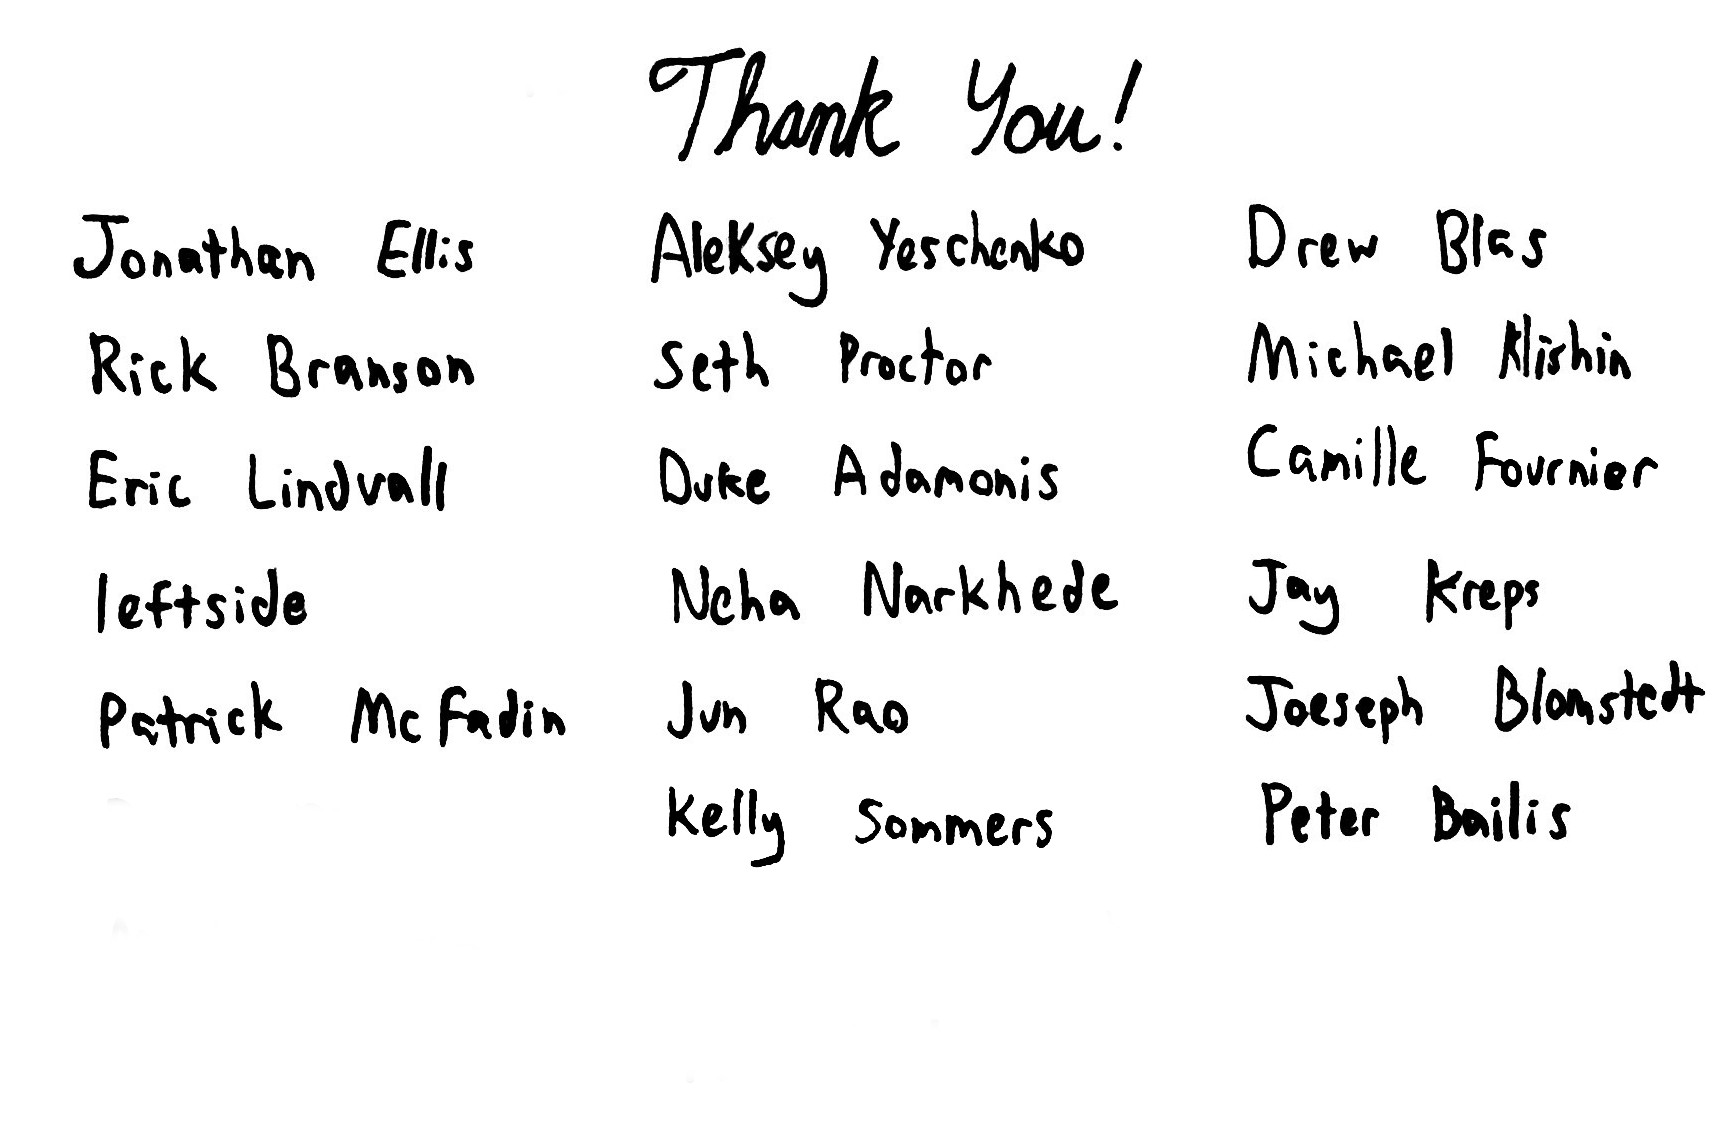 Thank You!
Jonathan Ellis
Rick Branson
Eric Lindvall
leftside
Patrick McFadin
Aleksey Yeschenko
Seth Proctor
Duke Adamonis
Neha Narkhede
Jun Rao
Kelly Sommers
Drew Blas
Michael Klishin
Camille Fournier
Jay Kreps
Joeseph Blomstedt
Peter Bailis